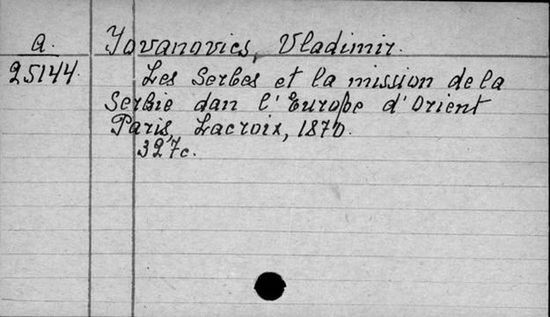 a. Jovanovics, Vladimir.
25144. Les Serbes et la mission de la
Serbie dan l'Europe d'Orient
Paris, Lacroix, 1870.
327c.